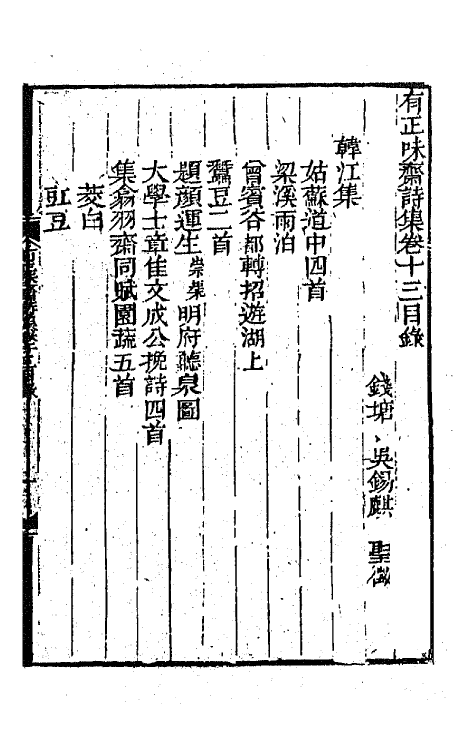 有正味齋詩集卷十三目錄
錢塘 吳錫麒 聖徵
韓江集
姑蘇道中四首
梁溪雨泊
曾賓谷都轉招遊湖上
蠶豆二首
題顏運生崇槼明府聽泉圖
大學士章佳文成公挽詩四首
集翁羽齋同賦園蔬五首
茭白
豇豆